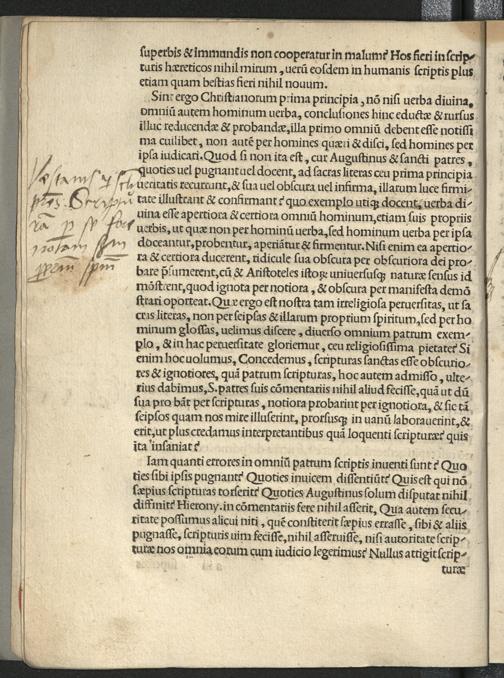 superbis & immundis non cooperatur in malum? Hos fieri in scrip-
turis hæreticos nihil mirum, uerū eosdem in humanis scriptis plus
etiam quam bestias fieri nihil nouum.
Sint ergo Christianorum prima principia, nō nisi uerba diuina,
omniū autem hominum uerba, conclusiones hinc eductæ & rursus
illuc reducendæ & probandæ, illa primo omniū debent esse notissi
ma cuilibet, non autē per homines quæri & disci, sed homines per
ipsa iudicari. Quod si non ita est, cur Augustinus & sancti patres,
quoties uel pugnant uel docent, ad sacras literas ceu prima principia
ueritatis recurrunt, & sua uel obscura uel infirma, illarum luce firmi-
tate illustrant & confirmant? quo exemplo utiq; docent, uerba di-
uina esse apertiora & certiora omniū hominum, etiam suis propriis
uerbis, ut quæ non per hominū uerba, sed hominum uerba per ipsa
doceantur, probentur, aperiātur & firmentur. Nisi enim ea apertio-
ra & certiora ducerent, ridicule sua obscura per obscuriora dei pro-
bare p̄sumerent, cū & Aristoteles istoꝝ uniuersusq; naturæ sensus id
mōstrent, quod ignota per notiora, & obscura per manifesta demō
strari oporteat. Quæ ergo est nostra tam irreligiosa peruersitas, ut sa
cras literas, non per seipsas & illarum proprium spiritum, sed per ho
minum glossas, uelimus discere, diuerso omnium patrum exem-
plo, & in hac peruersitate gloriemur, ceu religiosissima pietate? Si
enim hoc uolumus, Concedemus, scripturas sanctas esse obscurio-
res & ignotiores, quā patrum scripturas, hoc autem admisso, ulte-
rius dabimus, S. patres suis cōmentariis nihil aliud fecisse, quā ut dū
sua probāt per scripturas, notiora probarint per ignotiora, & sic tā
seipsos quam nos mire illuserint, prorsusq; in uanū laborauerint, &
erit, ut plus credamus interpretantibus quā loquenti scripturæ? quis
ita insaniat?
Iam quanti errores in omniū patrum scriptis inuenti sunt? Quo
ties sibi ipsis pugnant? Quoties inuicem dissentiūt? Quis est qui nō
sæpius scripturas torserit? Quoties Augustinus solum disputat nihil
diffinit? Hierony. in cōmentariis fere nihil asserit, Qua autem secu-
ritate possumus alicui niti, quē constiterit sæpius errasse, sibi & aliis
pugnasse, scripturis uim fecisse, nihil asseruisse, nisi autoritate scrip-
turæ nos omnia eorum cum iudicio legerimus? Nullus attigit scrip-
turæ